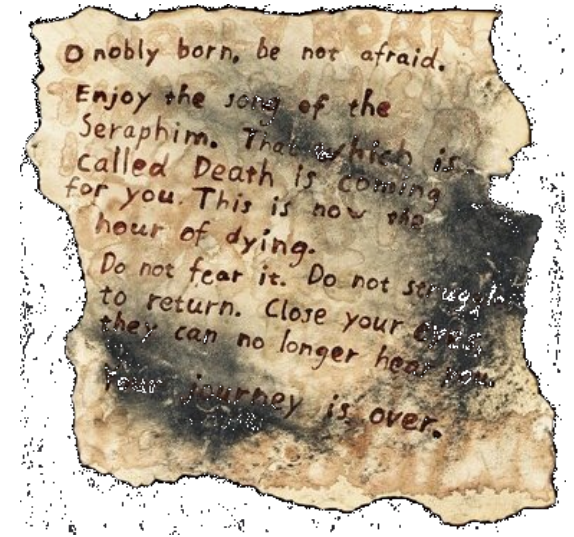 O nobly born, be not afraid.
Enjoy the song of the
Seraphim. That which is
called Death is coming
for you. This is now the
hour of dying.
Do not fear it. Do not struggle
to return. Close your eyes,
they can no longer hear you.
Your journey is over.